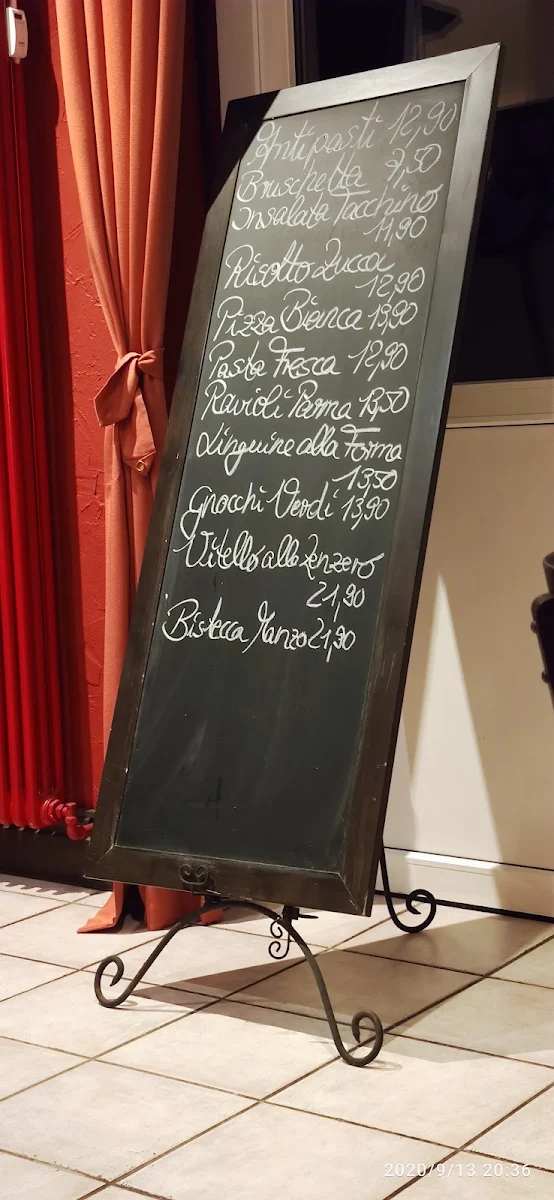 Antipasti 12,90
Bruschetta 7,50
Insalata Tacchino
11,90
Risotto Zucca
12,90
Pizza Bianca 13,90
Pasta Fresca 12,90
Ravioli Parma 13,50
Linguine alla Forma
13,50
Gnocchi Verdi 13,90
Vitello alla Zenzero
21,90
Bistecca Manzo 21,90
2020/9/13 20:36